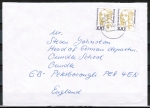 Mr.
Stephen Johnston
Head of German department
Oundle School
Oundle
GB- Peterborough PE8 4EN
England